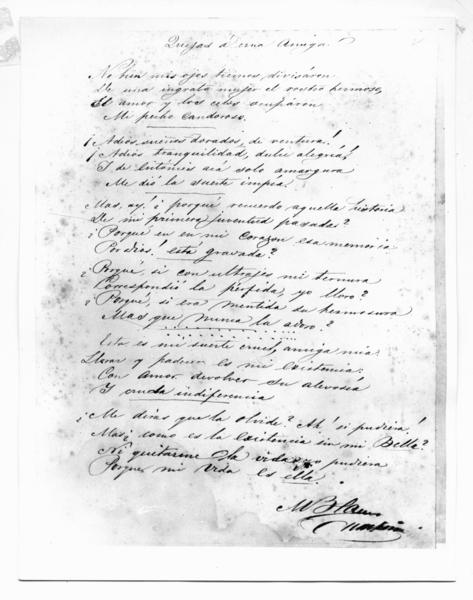 Quejas á una Amiga.
No bien mis ojos tiernos, divisáron
De una ingrata mujer el rostro hermoso,
El amor y los celos ocupáron
Mi pecho candoroso.
¡Adios, sueños dorados, de ventura!
¡Adios tranquilidad, dulce alegria!
I de entónces acá solo amargura
Me dió la suerte impia.
Mas, ay! ¿porqué recuerdo aquella historia
De mi primera juventud pasada?
¿Porqué en en mi corazon esa memoria
Por dios! está gravada?
¿Porque, si con ultrajes mi ternura
Correspondió la pérfida, yo lloro?
¿Porque, si era mentida su hermosura
Mas que nunca la adoro?
Esta es mi suerte cruel, amiga mia:
Llorar y padecer es mi existencia:
Con amor devolver su alevosía
I cruda indiferencia
¿Me diras que la olvide? Ah! si pudiera!
Mas ¿como es la existencia sin mi Bella?
Ni quitarme la vida yo pudiera
Porque mi vida es ella.